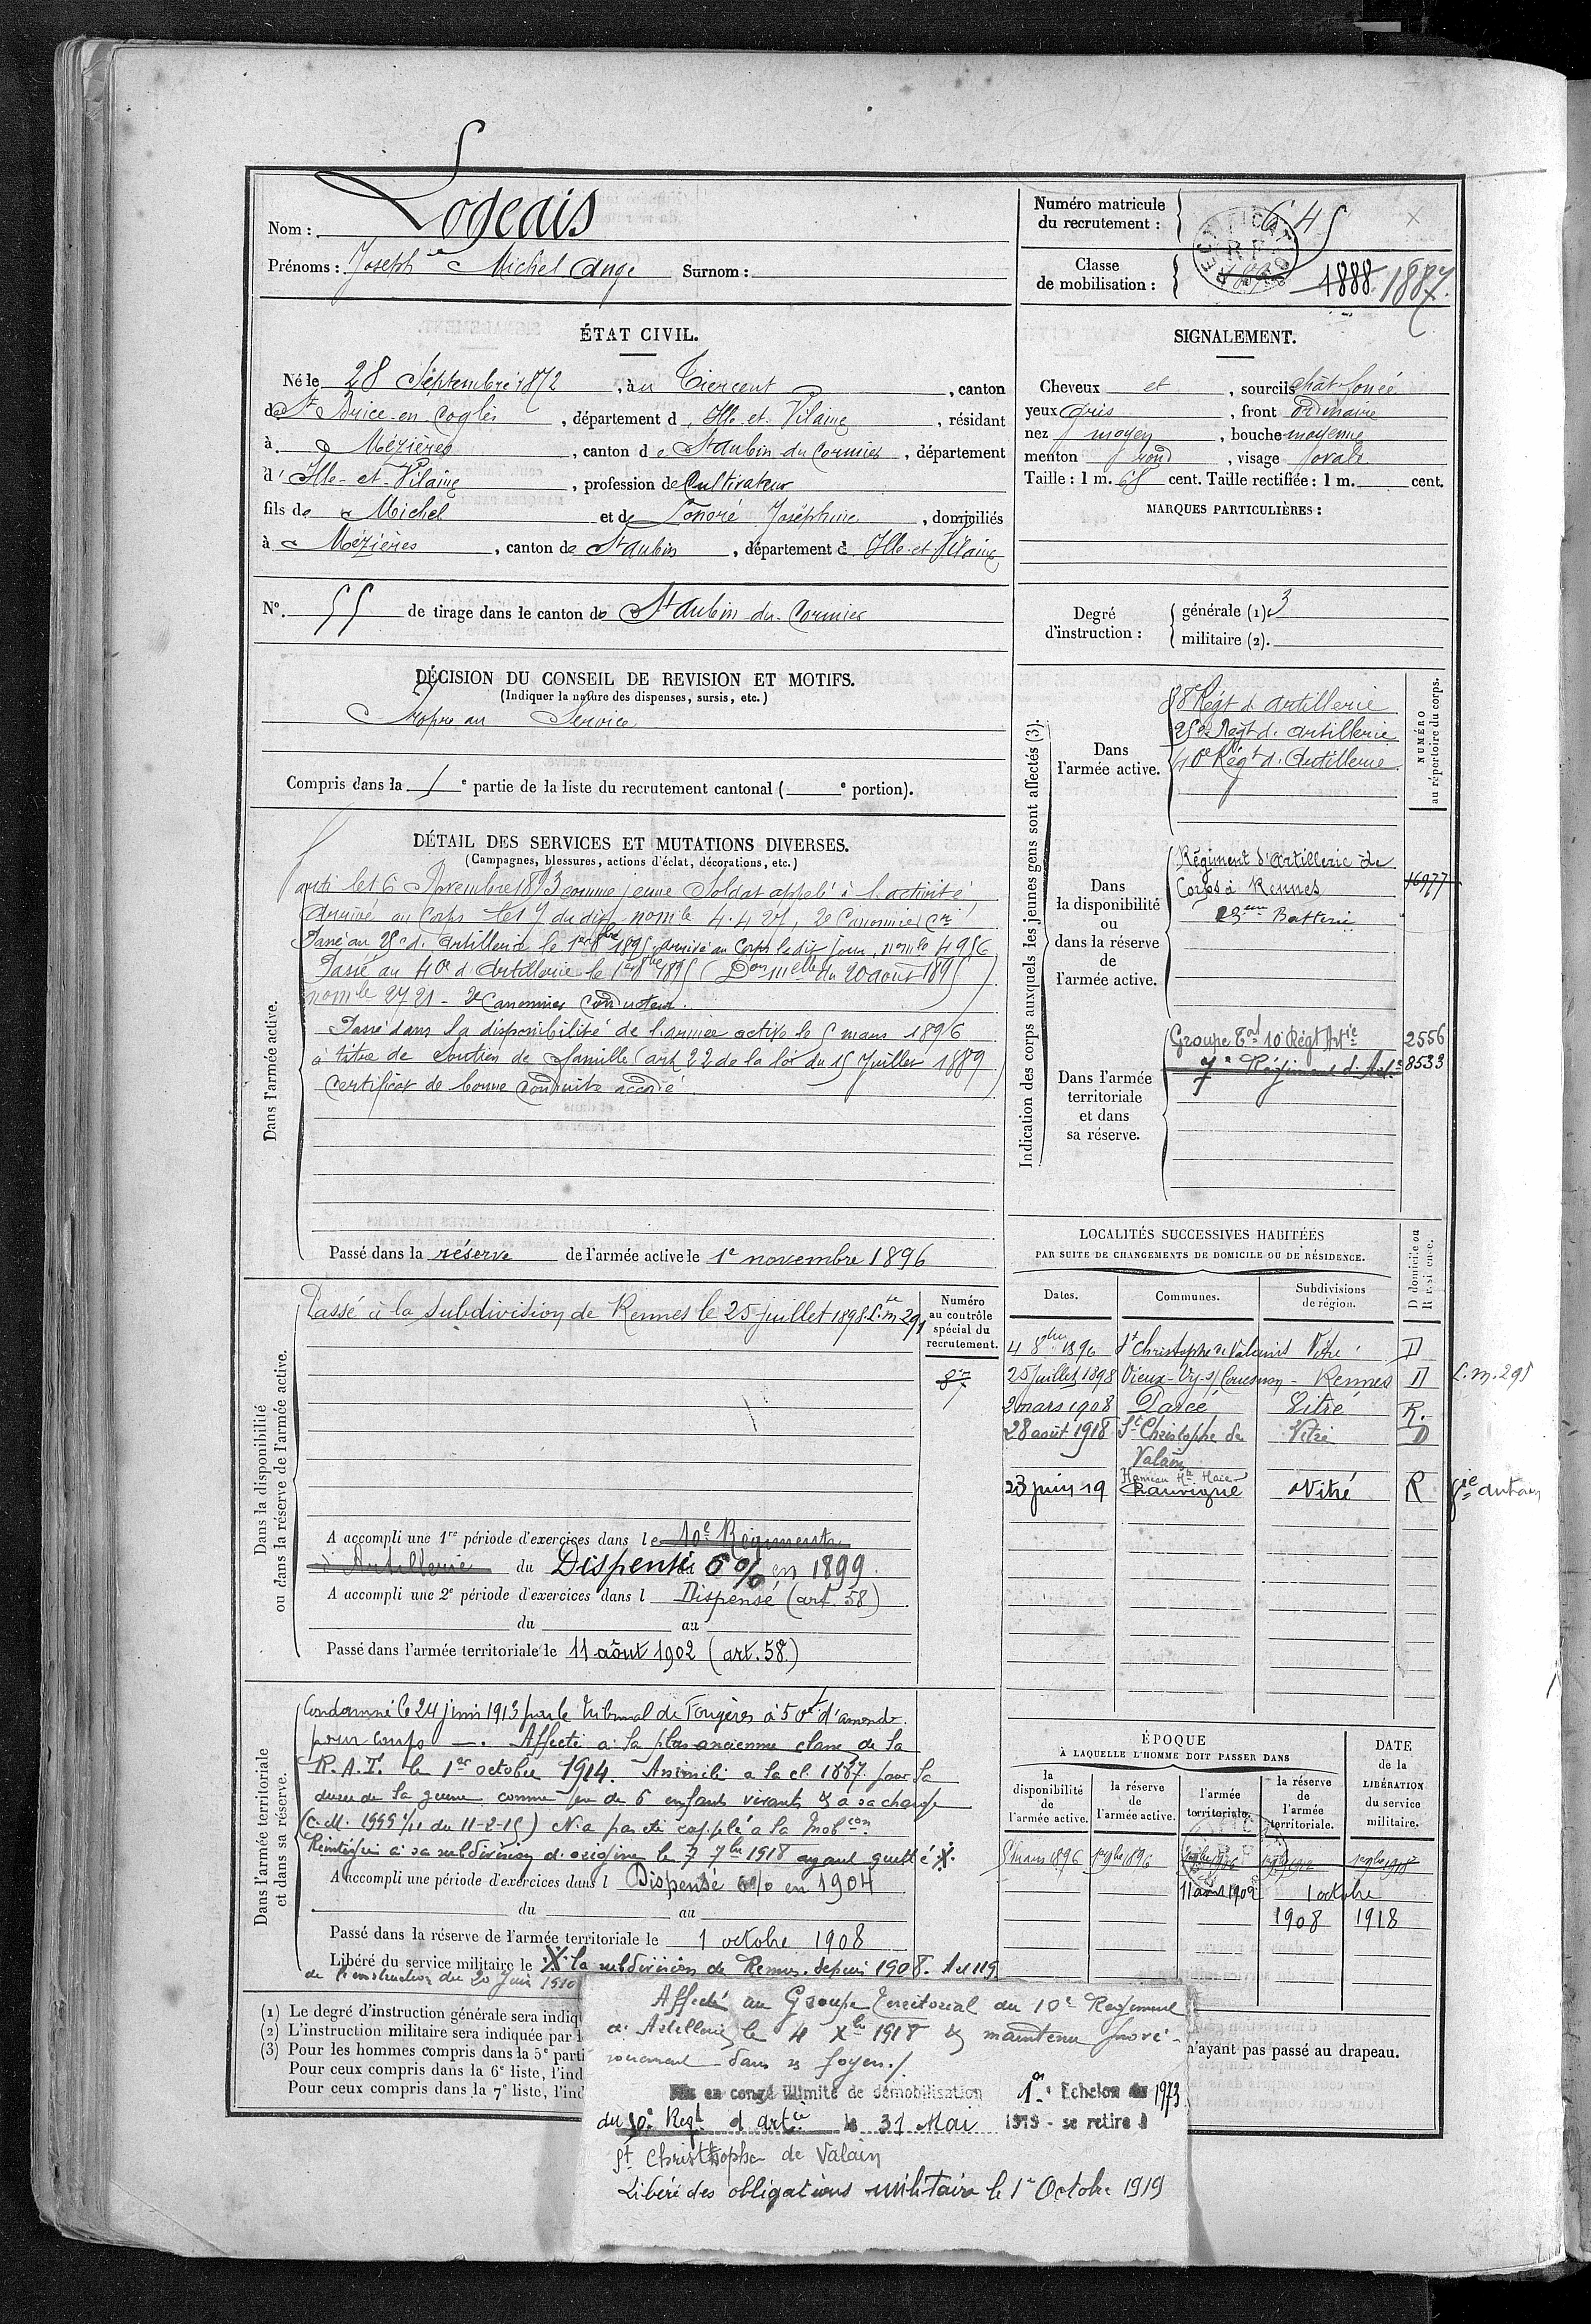 Nom : Logeais
Prénoms : Joseph Michel Ange Surnom :
Numéro matricule du recrutement : 645
Classe de mobilisation : 1888 1887.
ÉTAT CIVIL.
Né le 28 Septembre 1872, à u Tiercent, canton
de St Brice-en-Coglès, département d Ille-et-Vilaine, résidant
à Mézières, canton de St Aubin du Cormier, département
d'Ille-et-Vilaine, profession de Cultivateur
fils de Michel et de Lonoré Joséphine, domiciliés
à Mézières, canton de St Aubin, département d Ille-et-Vilaine
N° 55 de tirage dans le canton de St Aubin-du-Cormier
SIGNALEMENT.
Cheveux et, sourcils chât-foncé
yeux gris, front ordinaire
nez moyen, bouche moyenne
menton rond, visage ovale
Taille : 1 m. 65 cent. Taille rectifiée : 1 m. cent.
MARQUES PARTICULIÈRES :
Degré d'instruction :
générale (1). 3
militaire (2).
DÉCISION DU CONSEIL DE REVISION ET MOTIFS.
(Indiquer la nature des dispenses, sursis, etc.)
Propre au Service
Compris dans la 1e partie de la liste du recrutement cantonal ( e portion).
DÉTAIL DES SERVICES ET MUTATIONS DIVERSES.
(Campagnes, blessures, actions d'éclat, décorations, etc.)
Dans l'armée active.
Parti le 16 Novembre 1893 comme jeune Soldat appelé à l'activité
Arrivé au Corps le 17 du dit - nom le 4.427, 2e Canonnier Cr
Passé au 25e d'Artillerie le 1er 1895. Arrivé au Corps le dit jour, nom le 4956
Passé au 40e d'Artillerie le 1er 1895 (Don melle du 20 août 1895)
nom le 2721 - 2e Canonnier Conducteur.
Passé dans la disponibilité de l'armée active le 5 mars 1896
à titre de Soutien de famille (art 22 de la loi du 15 Juillet 1889)
Certificat de bonne Conduite accordé
Passé dans la réserve de l'armée active le 1e novembre 1896
Indication des corps auxquels les jeunes gens sont affectés (3).
NUMÉRO au répertoire du corps.
Dans l'armée active.
Régt d'Artillerie
25e Régt d'Artillerie
40e Régt d'Artillerie
Dans la disponibilité ou dans la réserve de l'armée active.
Régiment d'Artillerie de
Corps à Rennes 16977
23eme Batterie
Dans l'armée territoriale et dans sa réserve.
Groupe Tal 10e Régt Artie 2556
7e Régiment d'Art. 8533
Dans la disponibilité ou dans la réserve de l'armée active.
Numéro au contrôle spécial du recrutement.
Passé à la subdivision de Rennes le 25 juillet 1898. L. m 291
A accompli une 1re période d'exercices dans le 10e Régiment
d'Artillerie du Dispensé 6% en 1899.
A accompli une 2e période d'exercices dans l Dispensé (art. 58)
du au
Passé dans l'armée territoriale le 11 août 1902 (art. 58.)
LOCALITÉS SUCCESSIVES HABITÉES
PAR SUITE DE CHANGEMENTS DE DOMICILE OU DE RÉSIDENCE.
Dates. Communes. Subdivisions de région. D domicile ou R résidence.
4 8bre 1896 St Christophe de Valains Vitré D
25 juillet 1898 Vieux-Vy-s/Couesnon - Rennes D L. m. 295
2 mars 1908 Parcé Vitré R.
28 août 1918 St Christophe de Valain Vitré D
23 juin 19 Hameau Hte Haie Chauvigné Vitré R gie antrain
Dans l'armée territoriale et dans sa réserve.
Condamné le 24 juin 1913 par le tribunal de Fougères à 50f d'amende
pour coups —. Affecté à la plus ancienne classe de la
R.A.T. le 1er octobre 1914. Assimilé à la cl. 1887 pour la
durée de la guerre comme père de 6 enfants vivants & à sa charge
(C.M. 1999 1/11 du 11-2-15) N'a pas été rappelé à la Mobon.
Réintégré à sa subdivision d'origine le 7 7bre 1918 ayant quitté X.
A accompli une période d'exercices dans l Dispensé 6% en 1904
du au
Passé dans la réserve de l'armée territoriale le 1 octobre 1908
Libéré du service militaire le X la subdivision de Rennes depuis 1908. Art 119
de l'instruction du 20 Juin 1910
ÉPOQUE
À LAQUELLE L'HOMME DOIT PASSER DANS
la disponibilité de l'armée active.
la réserve de l'armée active.
l'armée territoriale.
la réserve de l'armée territoriale.
DATE de la LIBÉRATION du service militaire.
5 mars 1896 1er 9bre 1896
11 août 1902 1 octobre
1908 1918
(1) Le degré d'instruction générale sera indiq
(2) L'instruction militaire sera indiquée par l
(3) Pour les hommes compris dans la 5e parti
n'ayant pas passé au drapeau.
Pour ceux compris dans la 6e liste, l'ind
Pour ceux compris dans la 7e liste, l'ind
Affecté au Groupe territorial du 10e Régiment
d'Artillerie le 4 Xbre 1918 & maintenu provi-
soirement dans ses foyers./
Mis en congé illimité de démobilisation 1er Echelon du 1973
du 10e Régt d'artie le 31 Mai 1919 - se retire à
St Christophe de Valain
Libéré des obligations militaire le 1er Octobre 1919